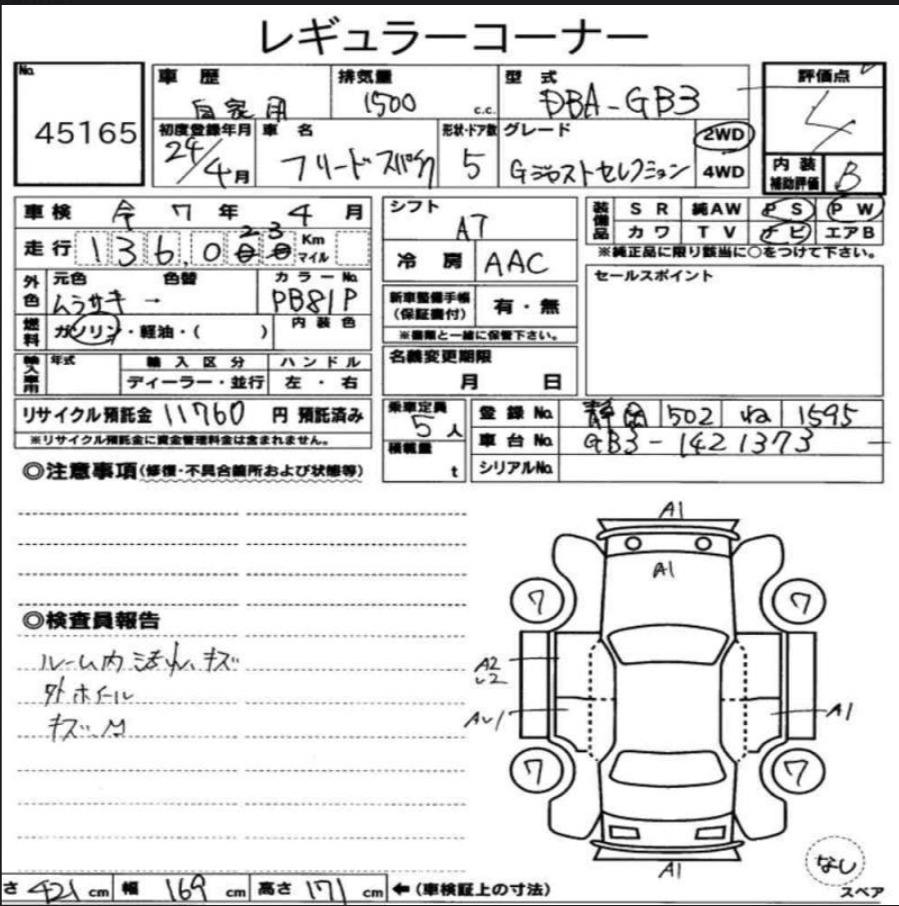 レギュラーコーナー
No. 45165
車歴 自家用
排気量 1500 c.c.
型式 DBA-GB3
評価点 4
初度登録年月 24/4月
車名 フリードスパイク
形状・ドア数 5
グレード Gジャストセレクション
2WD
4WD
内装補助評価 B
車検 令 7 年 4 月
走行 136,023 Km マイル
外色 元色 ムラサキ → 色替
カラーNo. PB81P
燃料 ガソリン・軽油・( )
内装色
輸入車用 年式
輸入区分 ディーラー・並行
ハンドル 左・右
リサイクル預託金 11760 円 預託済み
※リサイクル預託金に資金管理料金は含まれません。
シフト AT
冷房 AAC
新車整備手帳(保証書付) 有・無
※書類と一緒に保管下さい。
名義変更期限 月 日
乗車定員 5人
積載量 t
装備品 SR 純AW PS PW
カワ TV ナビ エアB
※純正品に限り該当に○をつけて下さい。
セールスポイント
登録No. 静岡 502 ね 1595
車台No. GB3-1421373
シリアルNo.
◎注意事項(修復・不具合箇所および状態等)
◎検査員報告
ルーム内 汚れ、キズ
外 ホイール
キズ、M
A1
A1
7 7
A2
A1
A1
7 7
A1
なし
スペア
さ 421 cm 幅 169 cm 高さ 171 cm ←(車検証上の寸法)